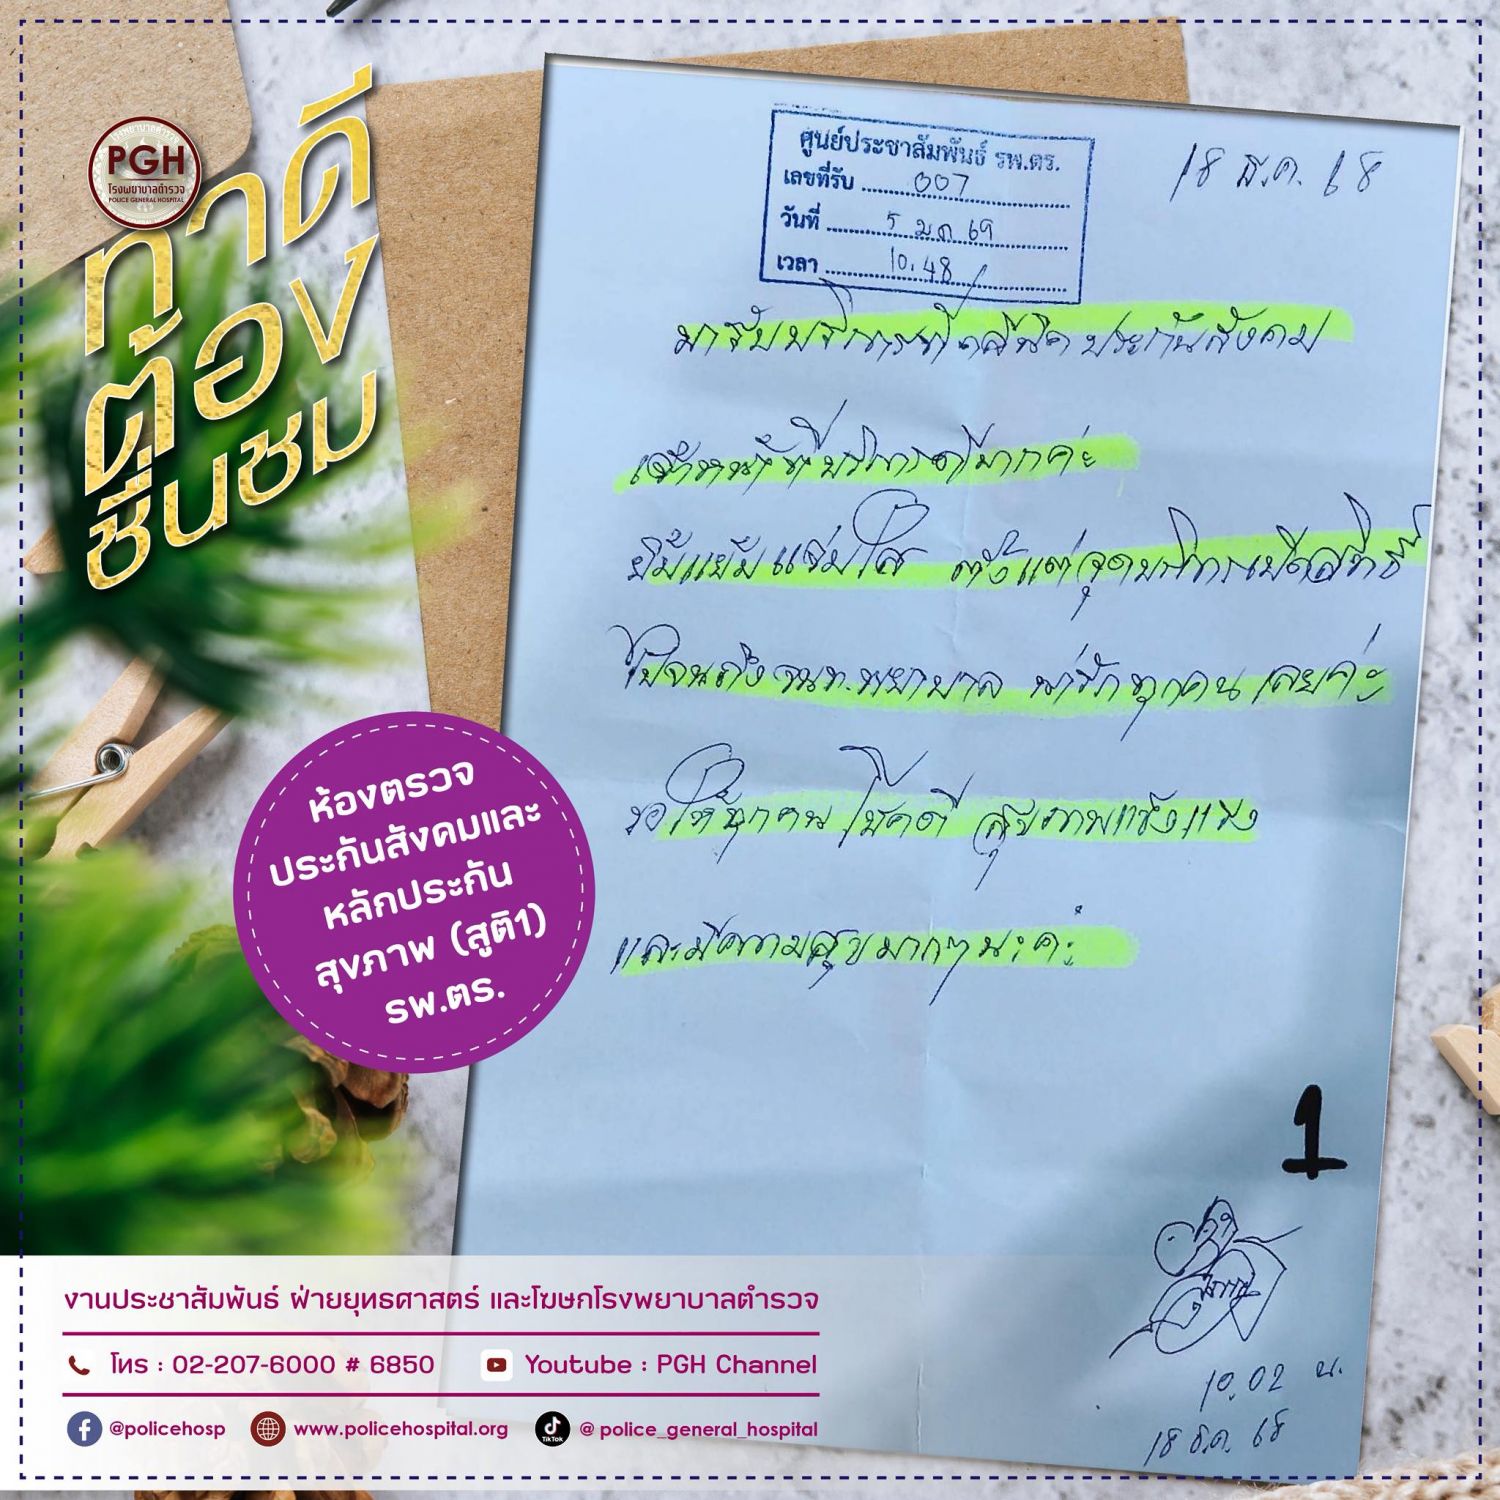 โรงพยาบาลตำรวจ
PGH
โรงพยาบาลตำรวจ
POLICE GENERAL HOSPITAL
ทำดี
ต้อง
ชื่นชม
ศูนย์ประชาสัมพันธ์ รพ.ตร.
เลขที่รับ 007
วันที่ 5 ม.ค 69
เวลา 10.48
18 ธ.ค. 68
มารับบริการที่คลีนิค ประกันสังคม
เจ้าหน้าที่บริการดีมากค่ะ
ยิ้มแย้มแจ่มใส ตั้งแต่จุดบริการเปิดสิทธิ์
ไปจนถึง จนท.พยาบาล น่ารักทุกคนเลยค่ะ
ขอให้ทุกคน โชคดี สุขภาพแข็งแรง
และมีความสุขมากๆนะคะ
ห้องตรวจ
ประกันสังคมและ
หลักประกัน
สุขภาพ (สูติ1)
รพ.ตร.
1
10.02 น.
18 ธ.ค. 68
งานประชาสัมพันธ์ ฝ่ายยุทธศาสตร์ และโฆษกโรงพยาบาลตำรวจ
โทร : 02-207-6000 # 6850 Youtube : PGH Channel
@policehosp www.policehospital.org TikTok @ police_general_hospital